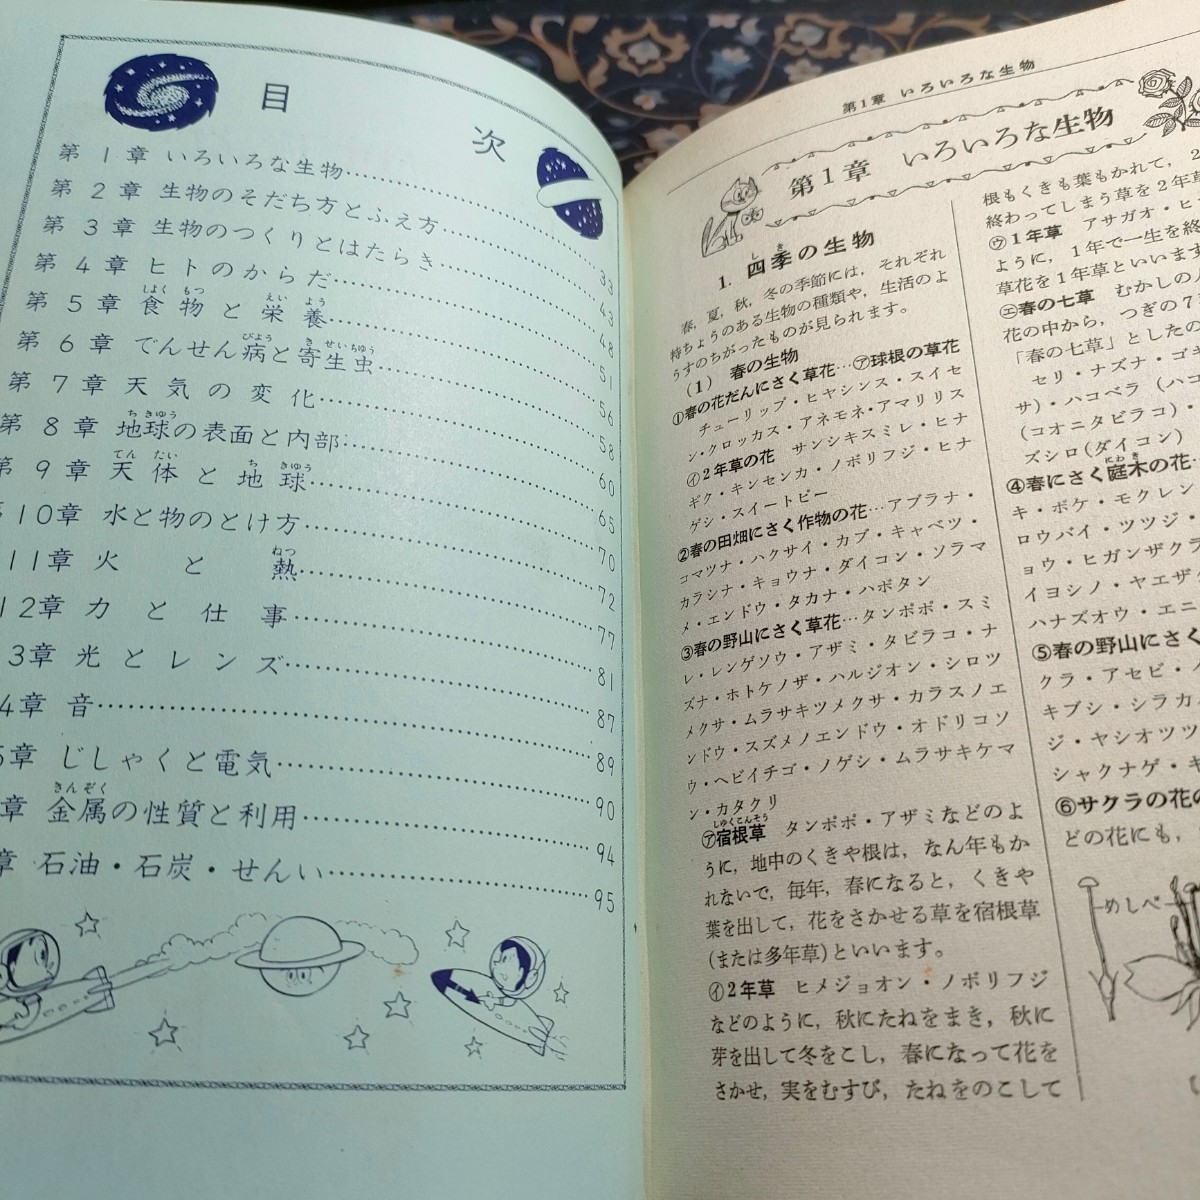 目次
第1章 いろいろな生物
第2章 生物のそだち方とふえ方
第3章 生物のつくりとはたらき 33
第4章 ヒトのからだ 43
第5章 食物と栄養 48
第6章 でんせん病と寄生虫 51
第7章 天気の変化 56
第8章 地球の表面と内部 58
第9章 天体と地球 60
第10章 水と物のとけ方 65
11章 火と熱 70
12章 力と仕事 72
3章 光とレンズ 77
4章 音 81
5章 じしゃくと電気 87
章 金属の性質と利用 89
章 石油・石炭・せんい 90
94
95
第1章 いろいろな生物
第1章 いろいろな生物
1. 四季の生物
春,夏,秋,冬の季節には,それぞれ
特ちょうのある生物の種類や,生活のよ
うすのちがったものが見られます。
(1) 春の生物
①春の花だんにさく草花…㋐球根の草花
チューリップ・ヒヤシンス・スイセ
ン・クロッカス・アネモネ・アマリリス
㋑2年草の花 サンシキスミレ・ヒナ
ギク・キンセンカ・ノボリフジ・ヒナ
ゲシ・スイートピー
②春の田畑にさく作物の花…アブラナ・
コマツナ・ハクサイ・カブ・キャベツ・
カラシナ・キョウナ・ダイコン・ソラマ
メ・エンドウ・タカナ・ハボタン
③春の野山にさく草花…タンポポ・スミ
レ・レンゲソウ・アザミ・タビラコ・ナ
ズナ・ホトケノザ・ハルジオン・シロツ
メクサ・ムラサキツメクサ・カラスノエ
ンドウ・スズメノエンドウ・オドリコソ
ウ・ヘビイチゴ・ノゲシ・ムラサキケマ
ン・カタクリ
㋐宿根草 タンポポ・アザミなどのよ
うに,地中のくきや根は,なん年もか
れないで,毎年,春になると,くきや
葉を出して,花をさかせる草を宿根草
(または多年草)といいます。
㋑2年草 ヒメジョオン・ノボリフジ
などのように,秋にたねをまき,秋に
芽を出して冬をこし,春になって花を
さかせ,実をむすび,たねをのこして
根もくきも葉もかれて,2
終わってしまう草を2年草
㋒1年草 アサガオ・ヒ
ように,1年で一生を終
草花を1年草といいます
㋓春の七草 むかしの人
花の中から,つぎの7
「春の七草」としたの
セリ・ナズナ・ゴギ
サ)・ハコベラ(ハコ
(コオニタビラコ)・
ズシロ(ダイコン)
④春にさく庭木の花…
キ・ボケ・モクレン
ロウバイ・ツツジ・
ョウ・ヒガンザクラ
イヨシノ・ヤエザク
ハナズオウ・エニ
⑤春の野山にさく
クラ・アセビ・
キブシ・シラカ
ジ・ヤシオツツ
シャクナゲ・キ
⑥サクラの花の
どの花にも,
めしべ